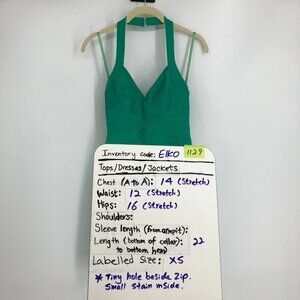 Inventory code: Elko 1129
Tops/Dresses/Jackets
Chest (A to A): 14 (Stretch)
Waist: 12 (Stretch)
Hips: 16 (Stretch)
Shoulders:
Sleeve length (from armpit):
Length (bottom of collar): 22
to bottom hem)
Labelled Size: XS
* Tiny hole beside zip.
Small stain inside.